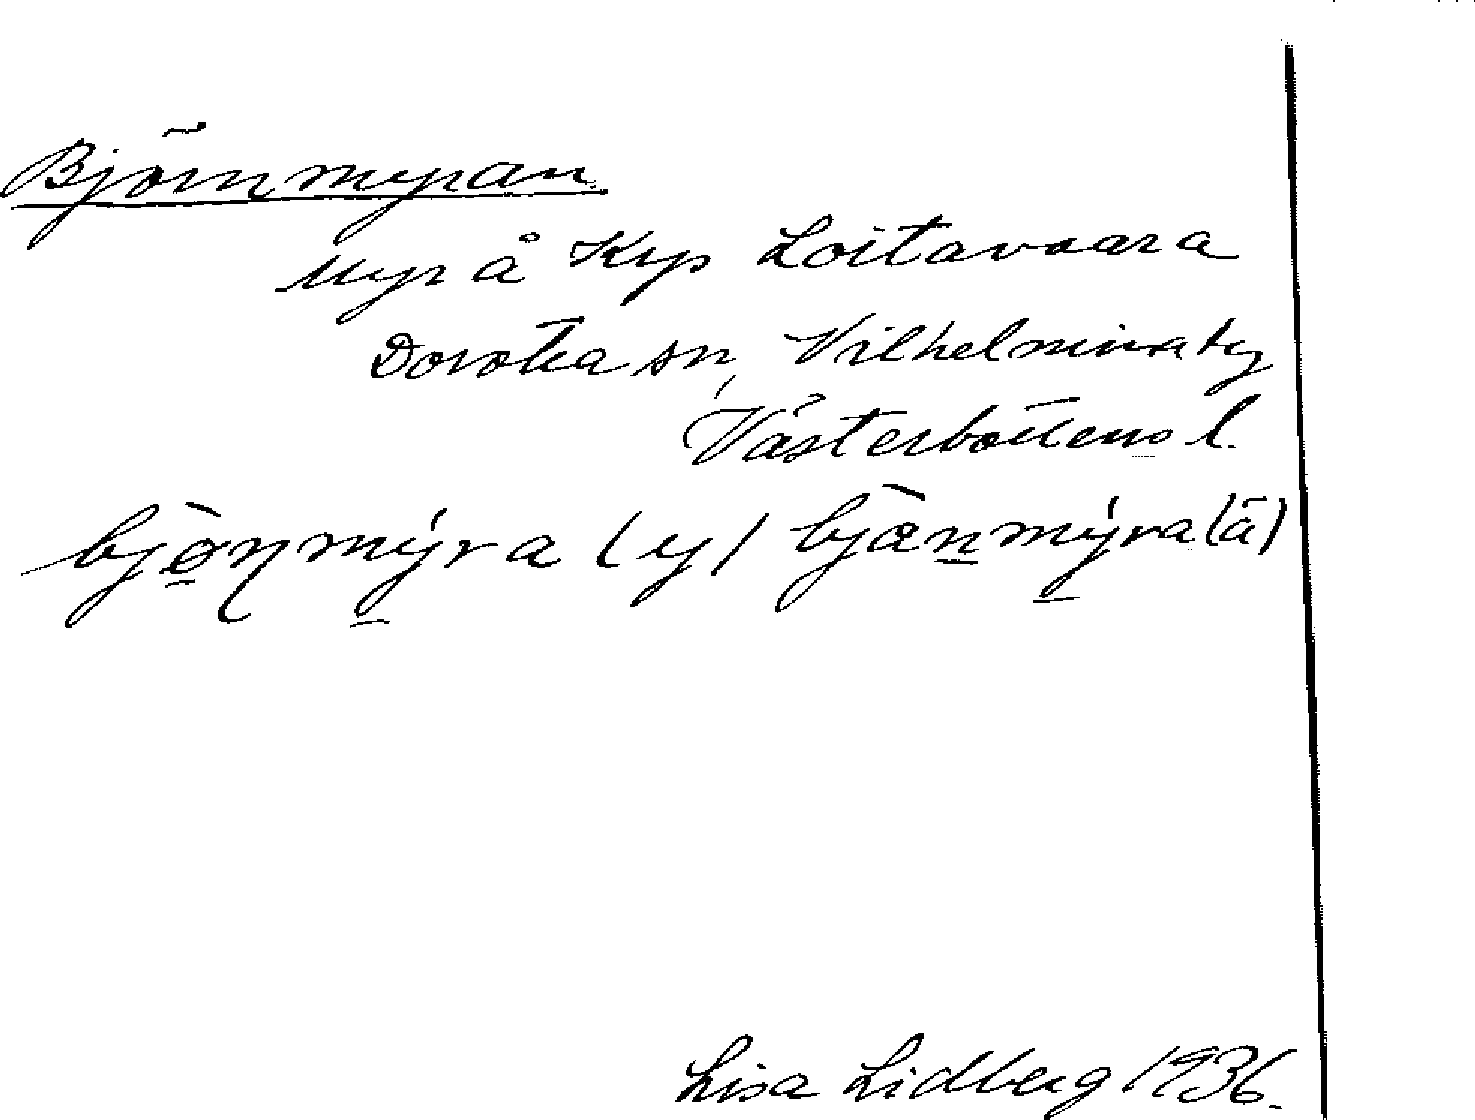 Björnmyran.
Myr å Kyp Loitavaara
Dorotea sn, Vilhelmina tg
Västerbottens l.
bjò̱ŋmý̱ra (y) bjàṉmý̱ra (ä)
Lisa Lidberg 1936.